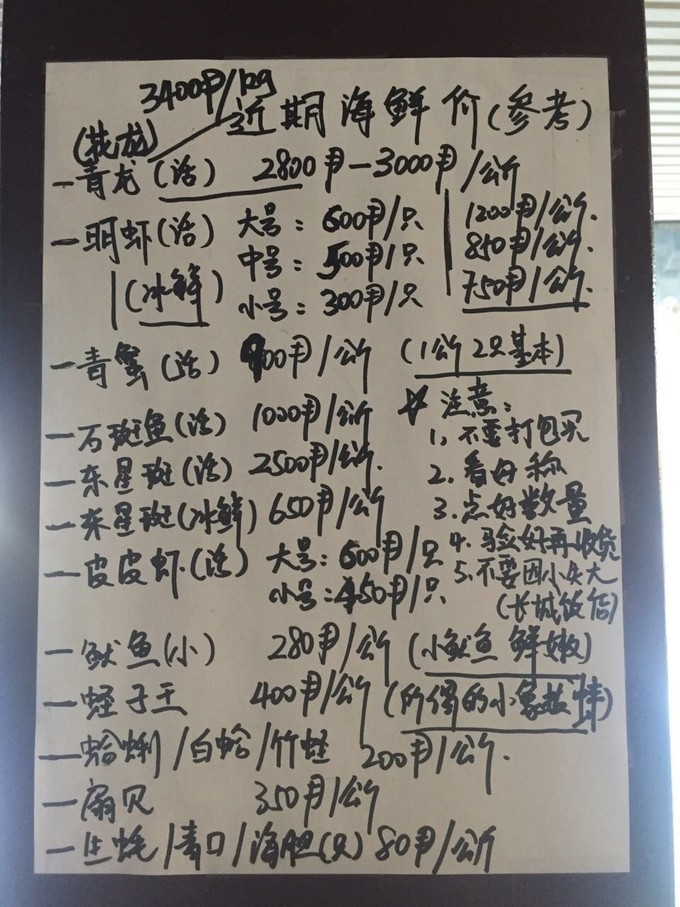 3400₱/kg
近期海鲜价(参考)
(花龙)
-青龙(活) 2800₱-3000₱/公斤
-明虾(活) 大号: 600₱/只 1200₱/公斤.
中号: 500₱/只 850₱/公斤.
(冰鲜) 小号: 300₱/只 750₱/公斤.
-青蟹(活) 900₱/公斤 (1公斤2只基本)
-石斑鱼(活) 1000₱/公斤
-东星斑(活) 2500₱/公斤.
-东星斑(冰鲜) 650₱/公斤
-皮皮虾(活) 大号: 600₱/只
小号: 450₱/只
注意:
1、不要打包买
2. 看好称
3. 点好数量
4. 验好再收货
5. 不要因小失大
(长城饭店)
-鱿鱼(小) 280₱/公斤 (小鱿鱼 鲜嫩)
-蛏子王 400₱/公斤 (所谓的小象拔蚌)
-蛤蜊/白蛤/竹蛏 200₱/公斤.
-扇贝 350₱/公斤
-生蚝/青口/海胆(只) 80₱/公斤